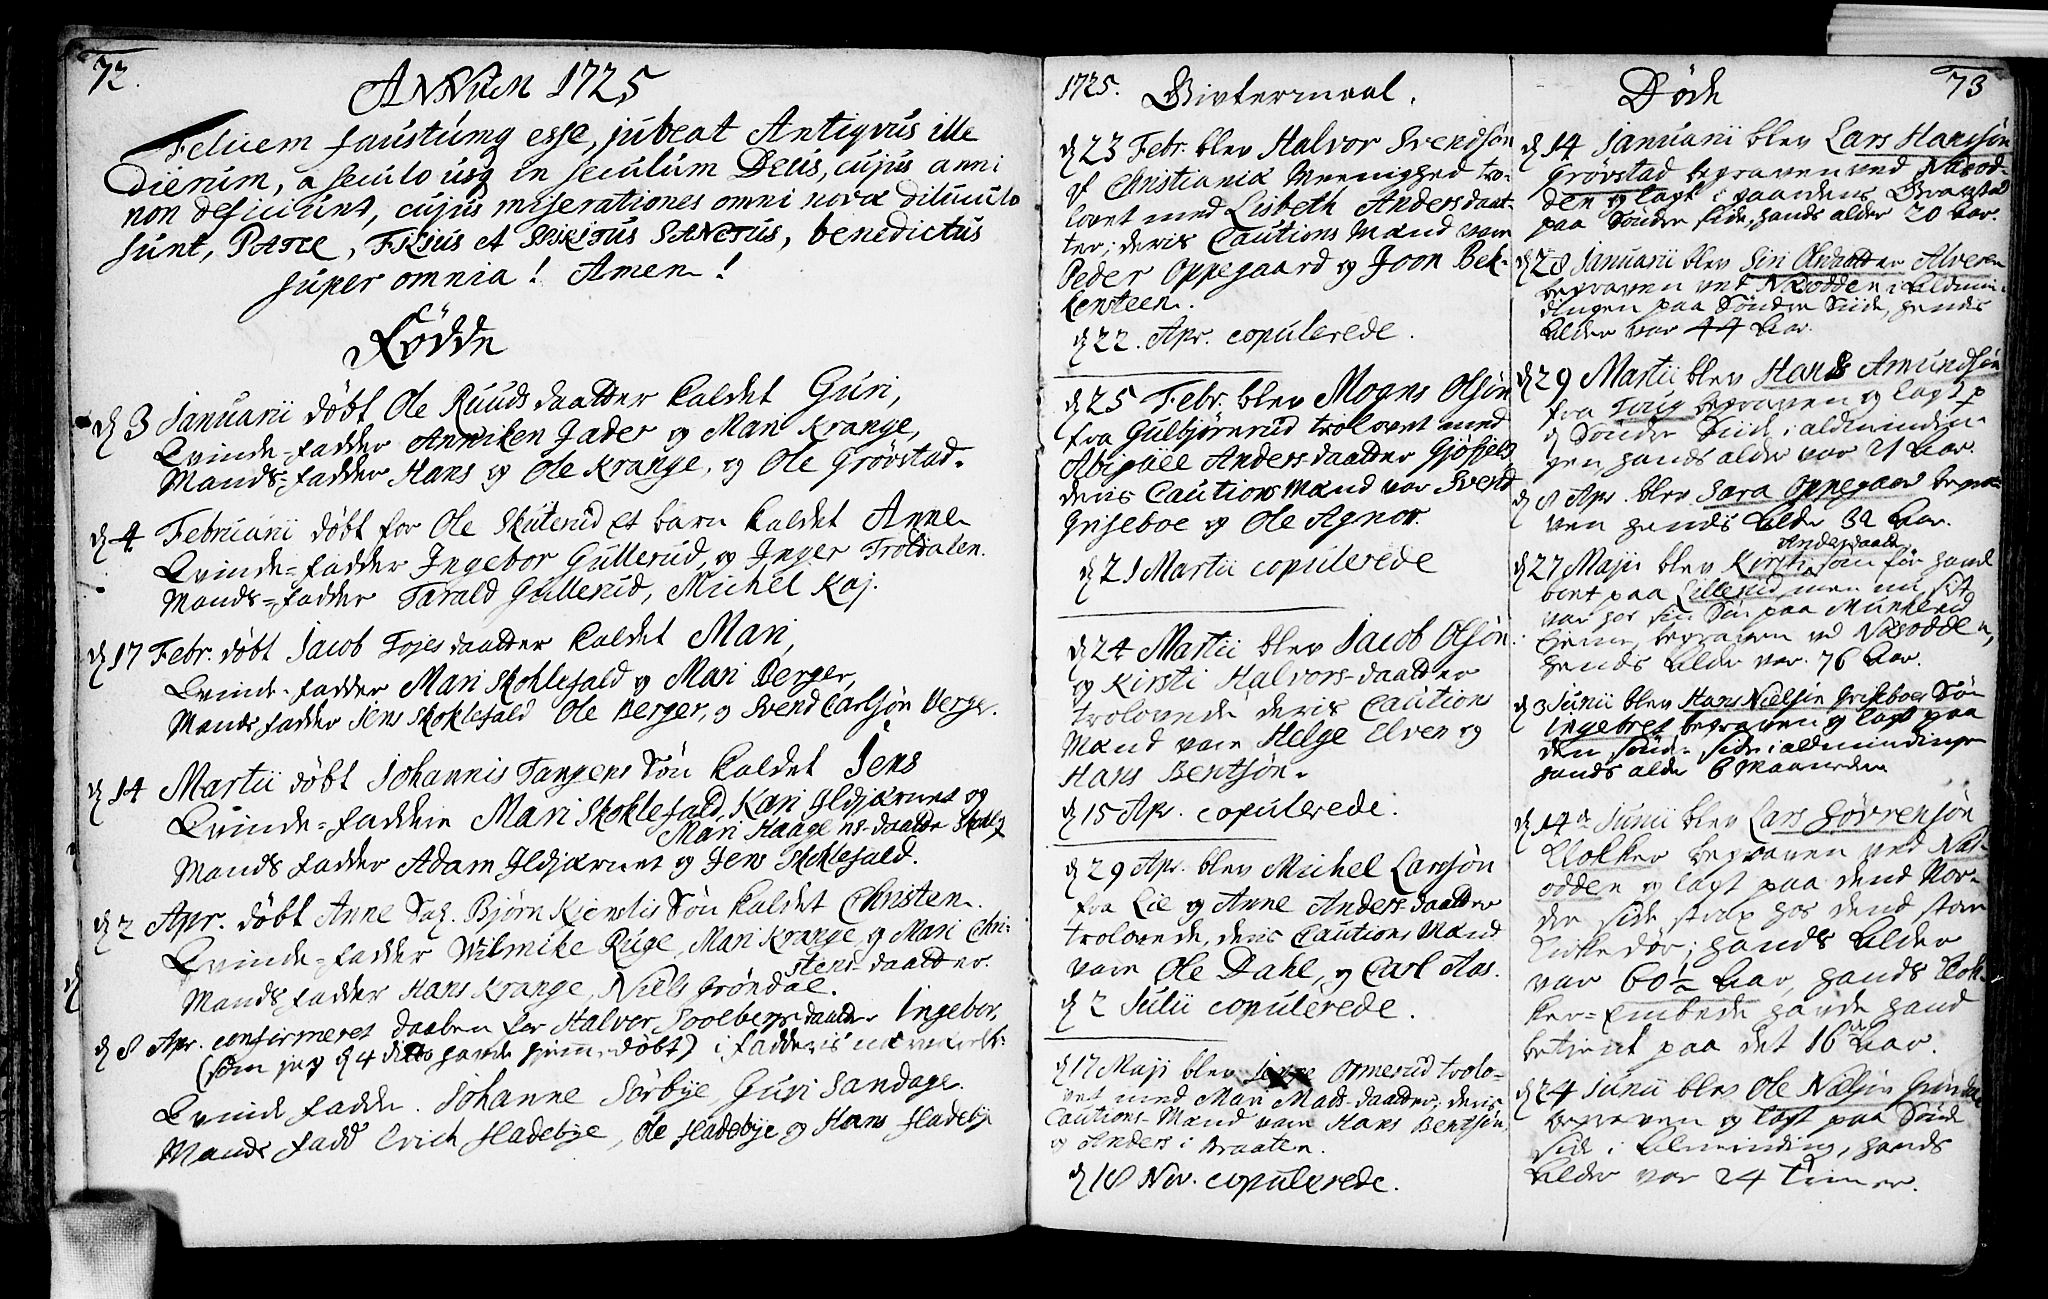 72.
ANNUM 1725
Felicem faustumq esse, jubeat Antiqvus ille
Dierum, a seculo usq in seculum Deus, cujus anni
non deficiunt, cujus miserationes omni nova diluculo
sunt, PATER, FILIUS et SPIRITUS SANCTUS, benedictus
super omnia! Amen!
Fødde
d 3 Januarii døbt Ole Ruuds daatter kaldet Guri,
Qvinde-fadder Anniken Jader og Mari Krange,
Mands-fadder Hans og Ole Krange, og Ole Grøvstad.
d 4 Februarii døbt for Ole Skuterud et barn kaldet Anne
Qvinde-fadder Ingebor Gullerud, og Inger Troldalen.
Mands-fadder Tarald Gullerud, Michel Kaj.
d 17 Febr. døbt Jacob Tojes daatter kaldet Mari,
Qvinde-fadder Mari Skoklefald og Mari Berger,
Mands fadder Jens Skoklefald Ole Berger, og Svend Carlsøn Berger.
d 14 Martii døbt Johannis Tangens Søn kaldet Jens
Qvinde-faddere Mari Skoklefald, Kari Ildjærnet og
Mari Haagens-daatter
Mands fadder Adam Ildjærnet og Jens Skoklefald.
d 2 Apr. døbt Anne Sag. Bjørn Kierstis Søn kaldet Christen.
Qvinde-fadder Wilmike Ruge, Mari Krange og Mari Chri-
stens-daatter.
Mands fadder Hans Krange, Niels Grøndal.
d 8 Apr. confirmeret daaben for Halvor Soolbergs daatter Ingebor,
(som jeg d 4 ditto hafde hjemme døbt) i fadderis
Qvinde fadder. Johanne Sørbye, Guri Sandage.
Mands fadd Erich fladebye, Ole fladebye og Hans fladebye
1725. Givtermaal.
d 23 Febr. blev Halvor Svendsøn
af Christiania Meenighed tro-
lovet med Lisbeth Andersdaat-
ter; deris Cautions Mænd vare
Peder Oppegaard og Joon Bek-
kensteen.
d 22. Apr. copulerede.
d 25 Febr. blev Mogns Olsøn
fra Gulbjørnrud trolovet med
Abigael Anders-daatter Gjøfjeld
deris Cautions Mænd var Svend
Griseboe og Ole Agnor.
d 21 Martii copulerede
d 24 Martii blev Jacob Olsøn
og Kirsti Halvors-daatter
trolovede deris Cautions
Mænd vare Helge Elven og
Hans Bentsøn.
d 15 Apr. copulerede.
d 29 Apr. blev Michel Larsøn
fra Lie og Anne Anders-daatter
trolovede, deris Cautions Mænd
vare Ole Dahl, og Carl Aas.
d 2 Julii copulerede.
d 17 Maji blev Ormerud trolo-
vet med Mari Mads-daatter; deris
Cautions-Mænd vare Hans Bentsøn,
og Anders i Braaten.
d 18 Nov. copulerede.
73
Døde
d 14 Januarii blev Lars Hansøn
Grøvstad begraven ved Næsod-
den og lagt i gaardens Gravstæd
paa Søndre side, hands alder 70 Aar.
d 28 Januarii blev Siri Olsdatter Alveren
begraven ved Næsodden i Aldmin-
dingen paa Søndre Siide, hendis
Alder var 44 Aar.
d 29 Martii blev Hans Amundsøn
fra Toug begraven og lagt p
d Søndre Siide i aldmindin-
gen, hands alder var 21 Aar.
d 8 Apr. blev Sara Oppegaard begra-
ven hendis Alder 32 Aar.
Andersdaatter
d 27 Maji blev Kirsti som før hand
boet paa Lillerud, men nu sit
var hos sin Søn paa Munkerud
hjemme, begraven ved Næsodden,
hendis Alder var 76 Aar.
d 3 Junii blev Hans Nielsøn Griseboes Søn
Ingebret begraven og lagt paa
den Søndre side i aldmindingen
hands alder 6 Maaneder
d 14de Junii blev Lars Sørrensøn
klokker begraven ved Næs-
odden og lagt paa dend Nor-
dre side strax hos dend store
Kirkedør; hands Alder
var 60½ Aar, hands Klok-
ker-Embede hafde hand
betient paa det 16de Aar.
d 24 Junii blev Ole Nielsøn Grøndal
begraven og lagt paa Søndre
side i Alminding, hands
Alder var 24 Timer.